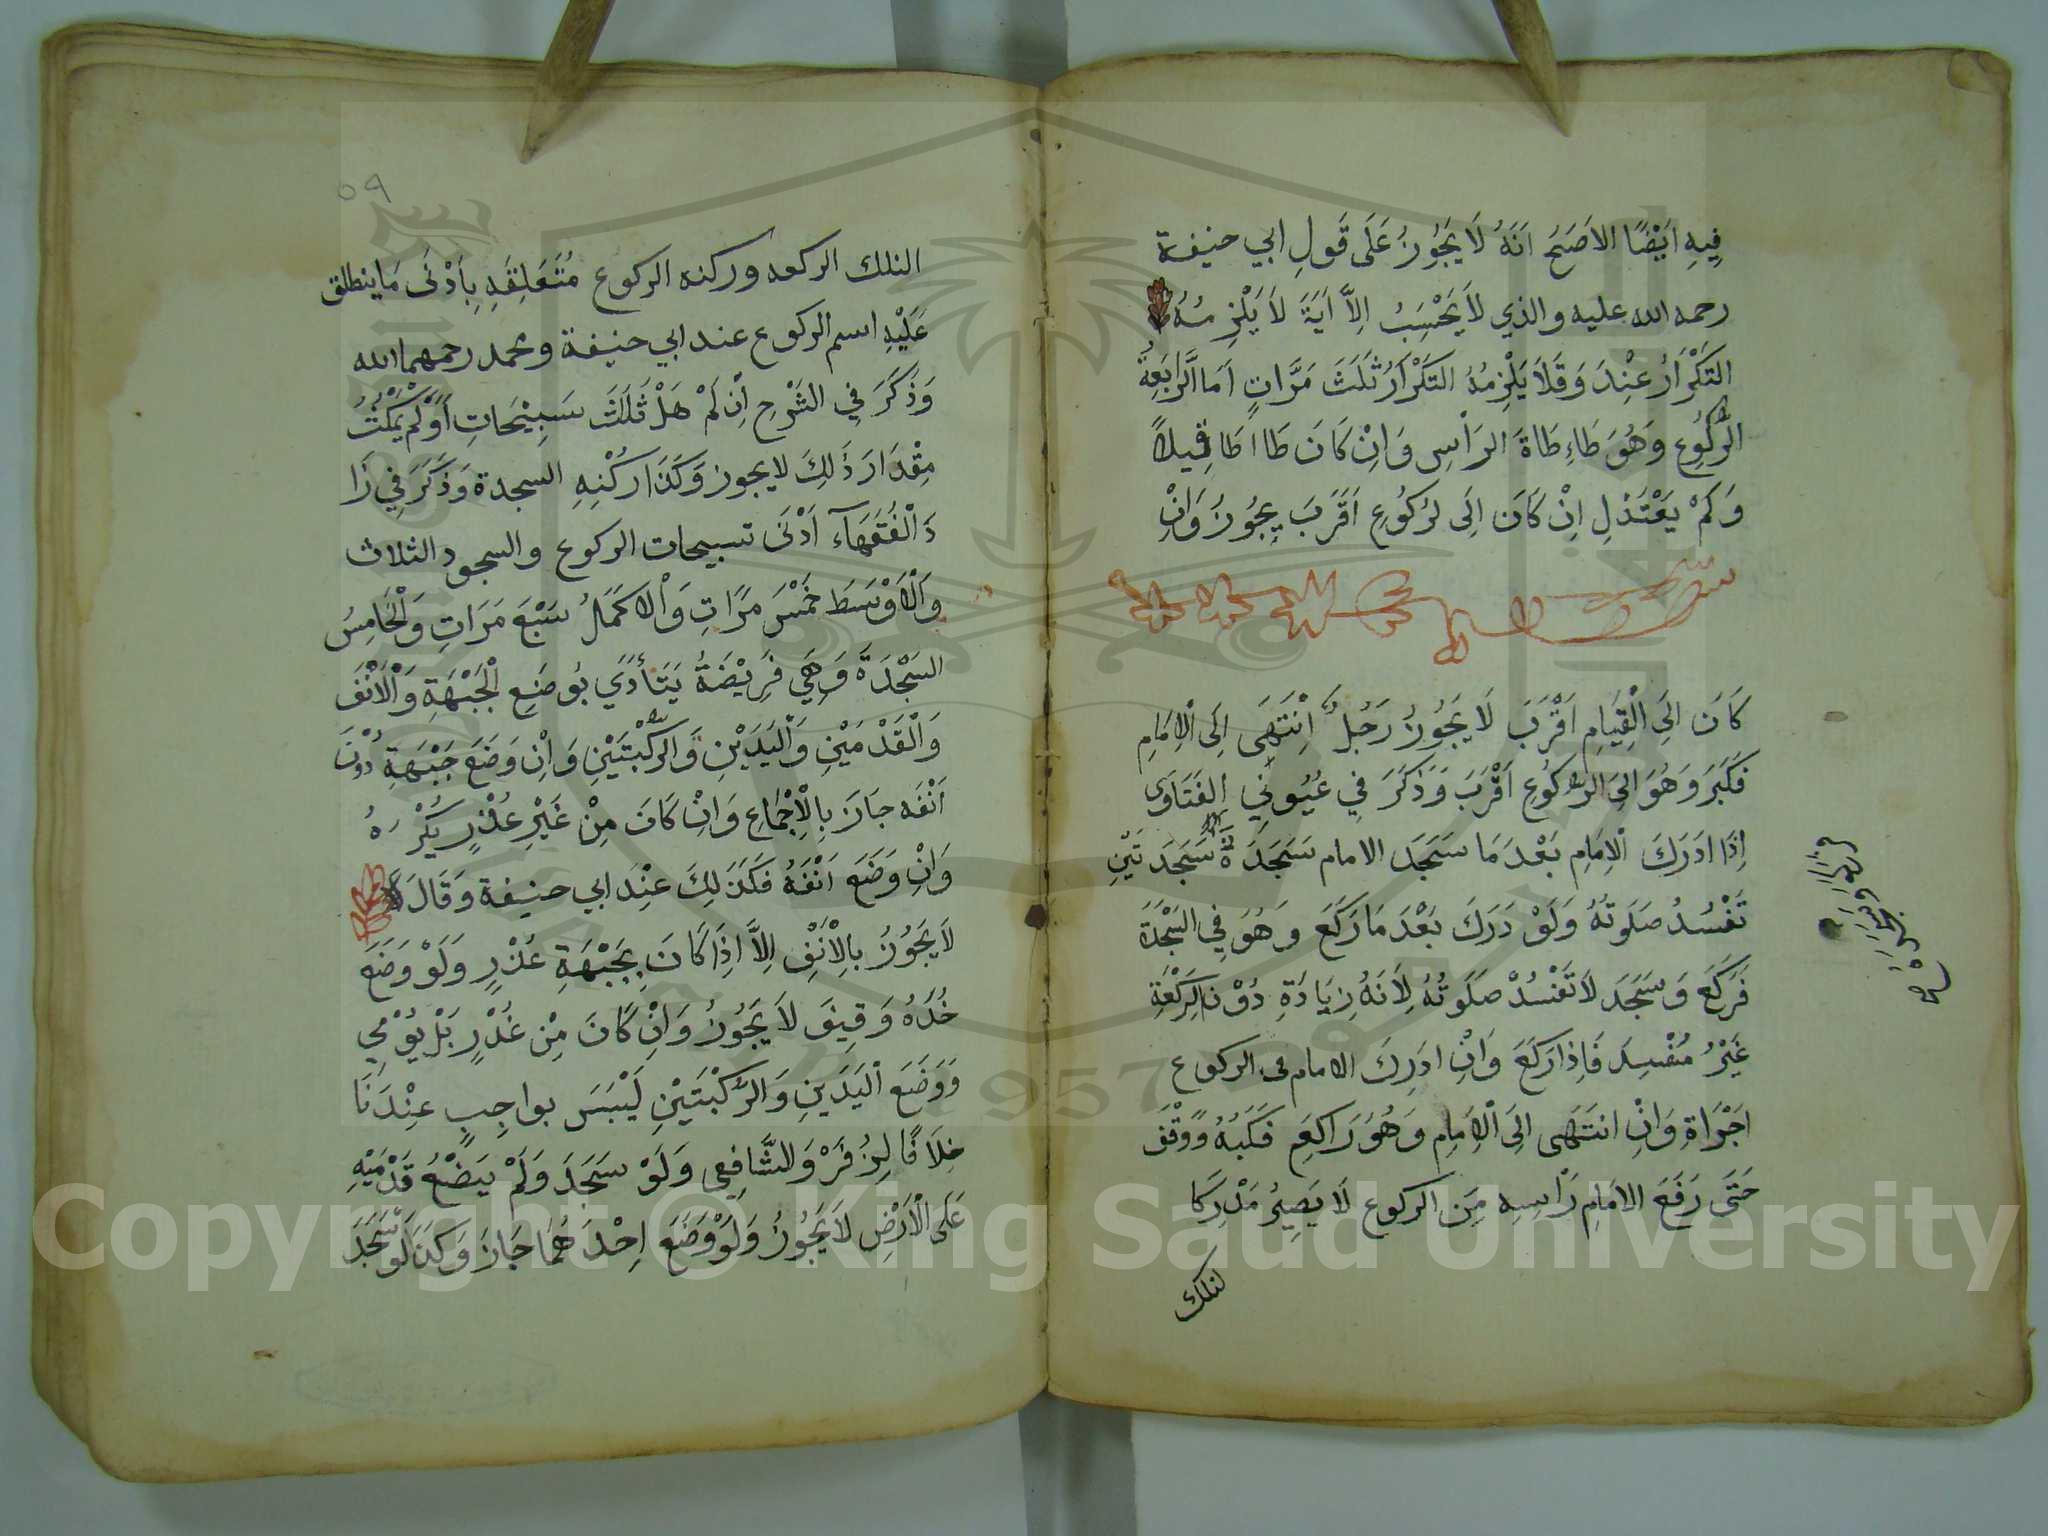 فِيهِ اَيْضًا الاَصَحُ اَنَهُ لَا يَجُوْزُ عَلَى قَولِ ابي حنيفة
رحمه الله عليه والذي لَا يَحْسِبُ اِلاَّ اَيَةَ لاَ يَلْزِمُهُ
التَكْرَارُ عِنْدَ وَقَلاَ يَلْزِمُهُ التَكْرَارُ ثَلَثَ مَرَّاتٍ اَمَا الَّرابَعِةُ
الرُّكُوُعِ وَهُوَ طَاءِطَاةَ الرَاْسِ وَانِْ كَانَ طَااطَا قِيلاً
وَكَمْ يَعْتَدْلِ اِنْ كَانَ اِلَى لرُكُوُعِ اَقَرَبَ يِجُوزُ وَانِْ
كَانَ اِلَى الْقِيَامِ اَقْرَبَ لاَ يَجُوزُ رَجُلُ اِنْتَهَى اِلَى الْاِمَامِ
فَكَبَرَ وَهُوَ اِلىَ الرُكُوُعِ اَقْرَبَ وَذَكَرَ فِي عُيُونِي الفَتَاوَى
اِذَا ادَرَكَ الْاِمَامِ بَعْدَمَا سَجَدَ الامام سَجَدَةً سَجَدَتَيْنِ
تَفْسُدُ صَلَوتُهُ وَلَوْ دَرَكَ بَعْدَ مَا رَكَعَ وَهُوَ فِي السَجْدَة
فَرَكَعَ وَسَجَدَ لاَ تَفْسُدْ صَلَوتُهُ لِاَنَهُ زِيَادَةِ دُوْنَ الرَكْعَةِ
غَيْرُ مُفْسِدَ فَاِذا رَكَعَ وَانِْ ادَرِكَ الامام فى الركوع
اجْزَاةِ وَانِْ انتَهَى اِلىَ الْاِمَامِ وَهُوُ رَاكِعِ فَكَبَهُ وَوَقْفَ
حَتىَ رَفَعَ الامَامِ رَاْسِهِ مِنَ الركوع لَا يَصِيرُ مدْرِكَا
لتلك
٥٩
التلك الركعه وركنه الركوع مُتَعَلِقَهِ بِاَدْنَى مَا ينطلق
عَلَيْهِ اسم الركوع عند ابي حنيفة ومحمد رحمهما الله
وَذَكَرَ فِي الشَرْحِ اِن لَمْ هَلْ ثَلَثَ سَبِيْحَاتِ اَوَْلَمْ يَمْكُثُ
مِقْدَارَ ذَلِكَ لا يجوز وَكَذَا رُكْنِهِ السجدة وَذَكَرَ فِي زَا
دَالْفُقَهَآءِ اَدْنَى تسبيحات الركوع والسجود الثلاث
وَالْاَوْسَط خَمْسَ مَرَّاتِ وَالاكَمَالُ سَبْعَ مَرَاتِ وَالْخَامِسُ
السَجْدَةَ وَهَِي فَرِيْضَةُ يَتَأدَىَ بُوضَعِ الْجَبْهَةِ وَالْاَنْفَ
وَالْقَدْمَيْنِ وَالْيَدَيْنِ وَالرُكْبْتَيْنِ وَانِْ وَضَعَ جَبْهَةِ دُوْنَ
اَنْفَه جازَ بِالْاِجْمَاعِ وَانِْ كَانَ مِنْ غَيْرِ عُذْرٍ يَكْرَهُ
وَانِْ وَضَعَ اَنْفَهُ فَكَذَلِكَ عِنْد ابي حنيفة وَقَالَا
لَا يَجُوُزُ بالْاَنْفِ اِلاَّ اذِاَ كَانَ بِجَبْهَةِ عُذْرٍ وَلَوْ وَضَعَ
خُدَهُ وَقِيَفَ لاَ يَجُوُزُ وَانِْ كَانَ مِنْ غُذْرٍ بَلْ يُوْمِي
وَوَضَعَ الْيَدَينِ وَالرُكْبْتَيْنِ لَيْسَ بواجِبٍ عِنْدَنَا
خِلاَفًا لِزُفَرْ وَالشَّافِعِي وَلَوْ سَجَدَ وَلَمْ يَضَعْ قَدْمَيْهِ
عَلَى الْاَرْضِ لَا يَجُوْزُ وَلَوْ وَضَعَ اِحْدَهُمَا جَازَ وَكذَ لَوْسَجَدَ
Copyright © King Saud University
1957